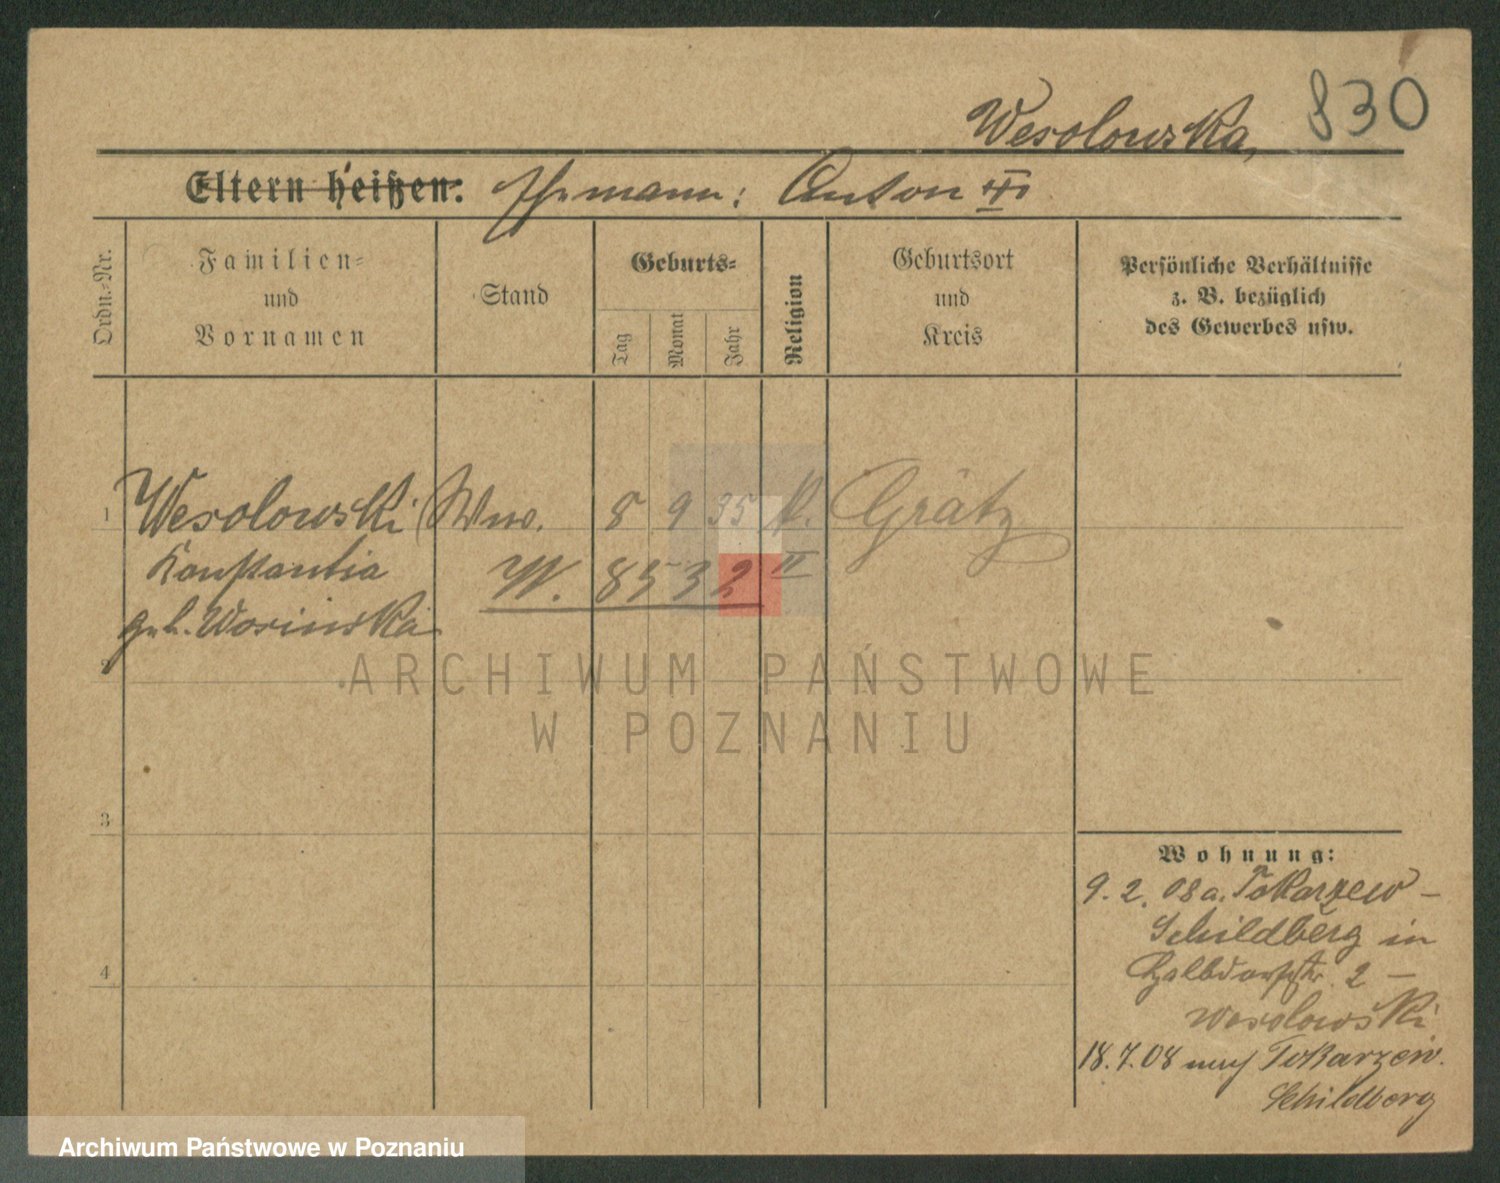 830
Wesolowska,
Eltern heißen: Ehemann: Anton
Ordn.-Nr.
Familien-
und
Vornamen
Stand
Geburts-
Tag
Monat
Jahr
Religion
Geburtsort
und
Kreis
Persönliche Verhältnisse
z. B. bezüglich
des Gewerbes usw.
1 Wesolowski Wwe. 8 9 35 k. Grätz
Konstantia W. 8532 II
geb. Wosinska
2
3
4
ARCHIWUM PAŃSTWOWE
W POZNANIU
Wohnung:
9. 2. 08 a. Tokarzew –
Schildberg in
Halbdorfstr. 2 –
Wesolowski
18.7.08 nach Tokarzew.
Schildberg
Archiwum Państwowe w Poznaniu